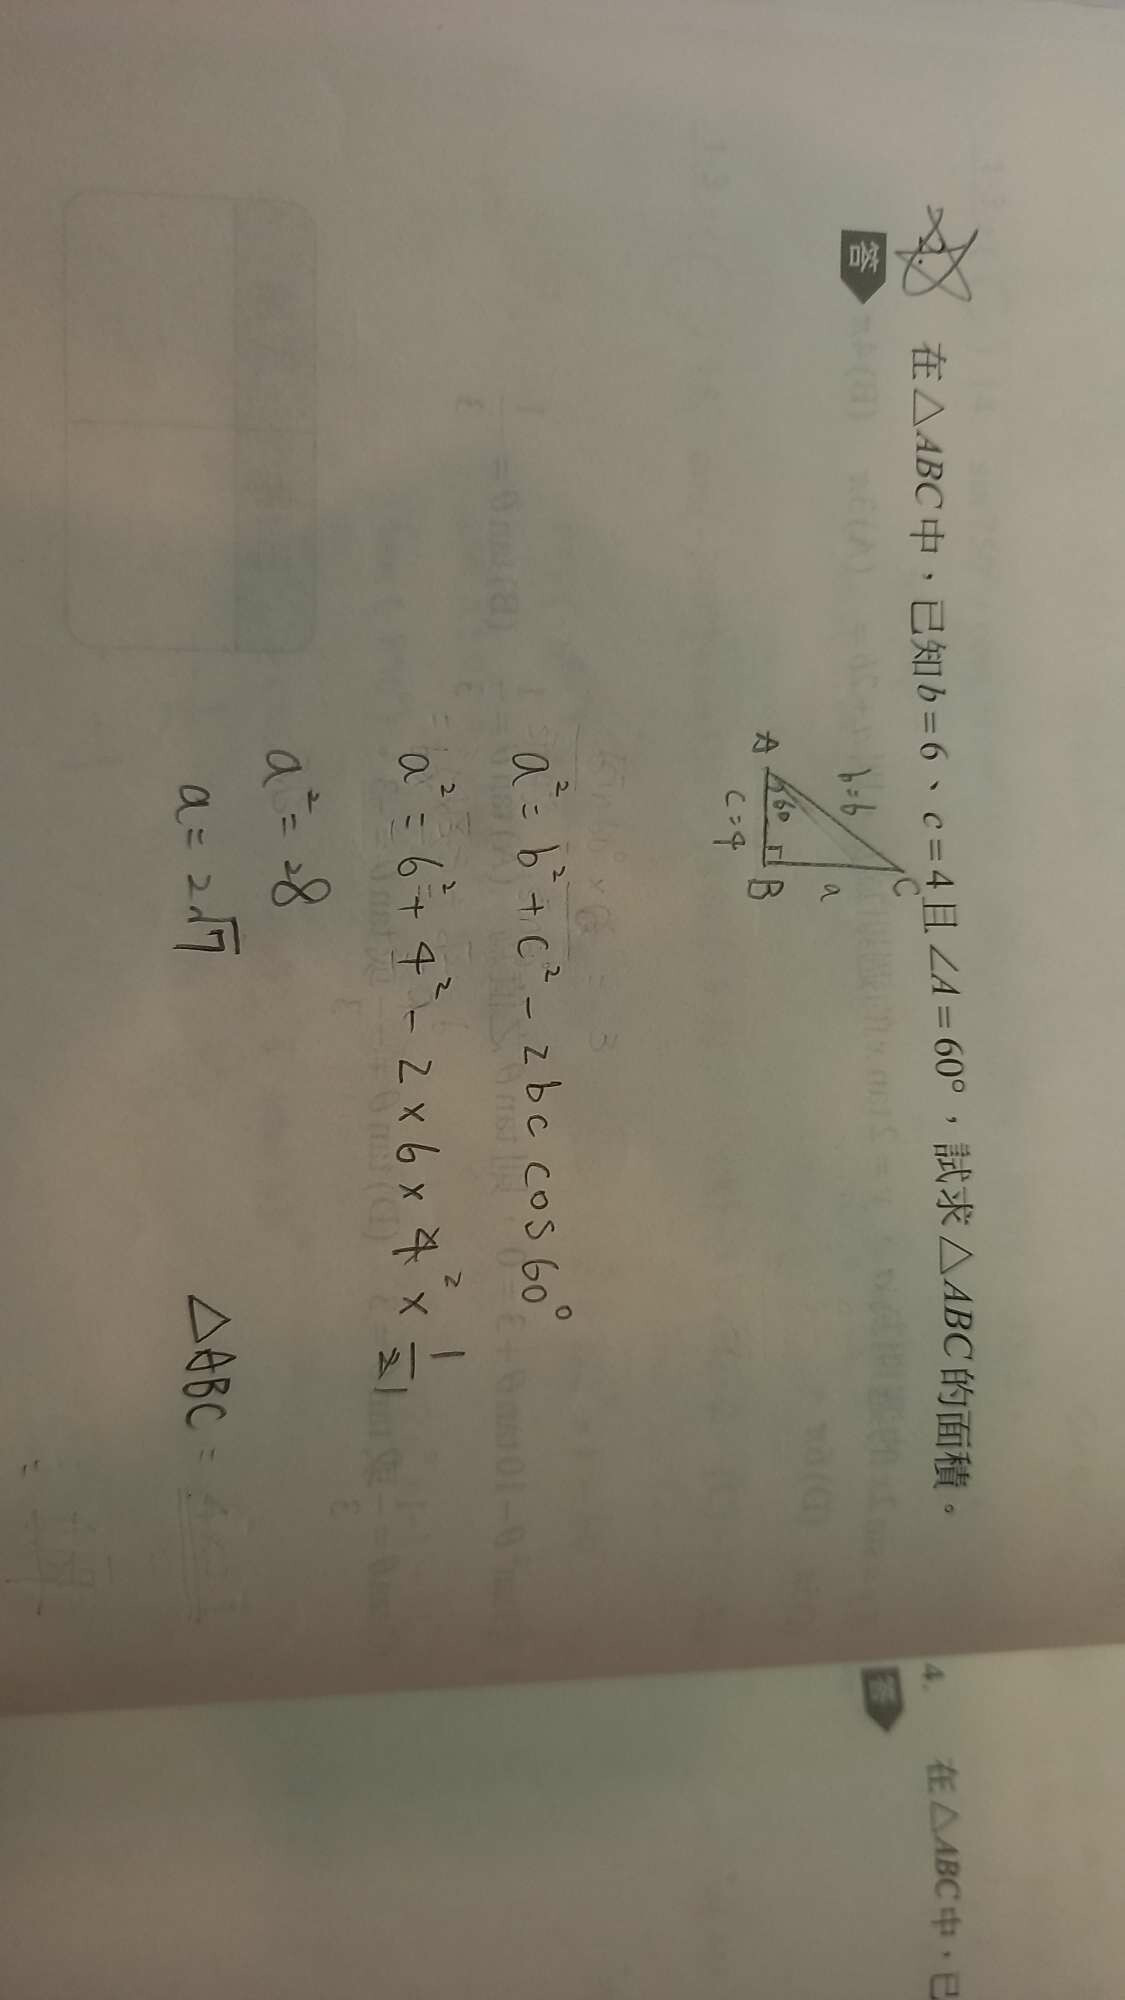 2. 在△ABC中，已知b=6、c=4且∠A=60°，試求△ABC的面積。
答
C
b=6
a
A
60
B
c=4
a²=b²+c²-2bc cos60°
a²=6²+4²-2×6×4×1/2
a²=28
a=2√7
△ABC=
4. 在△ABC中，已
答